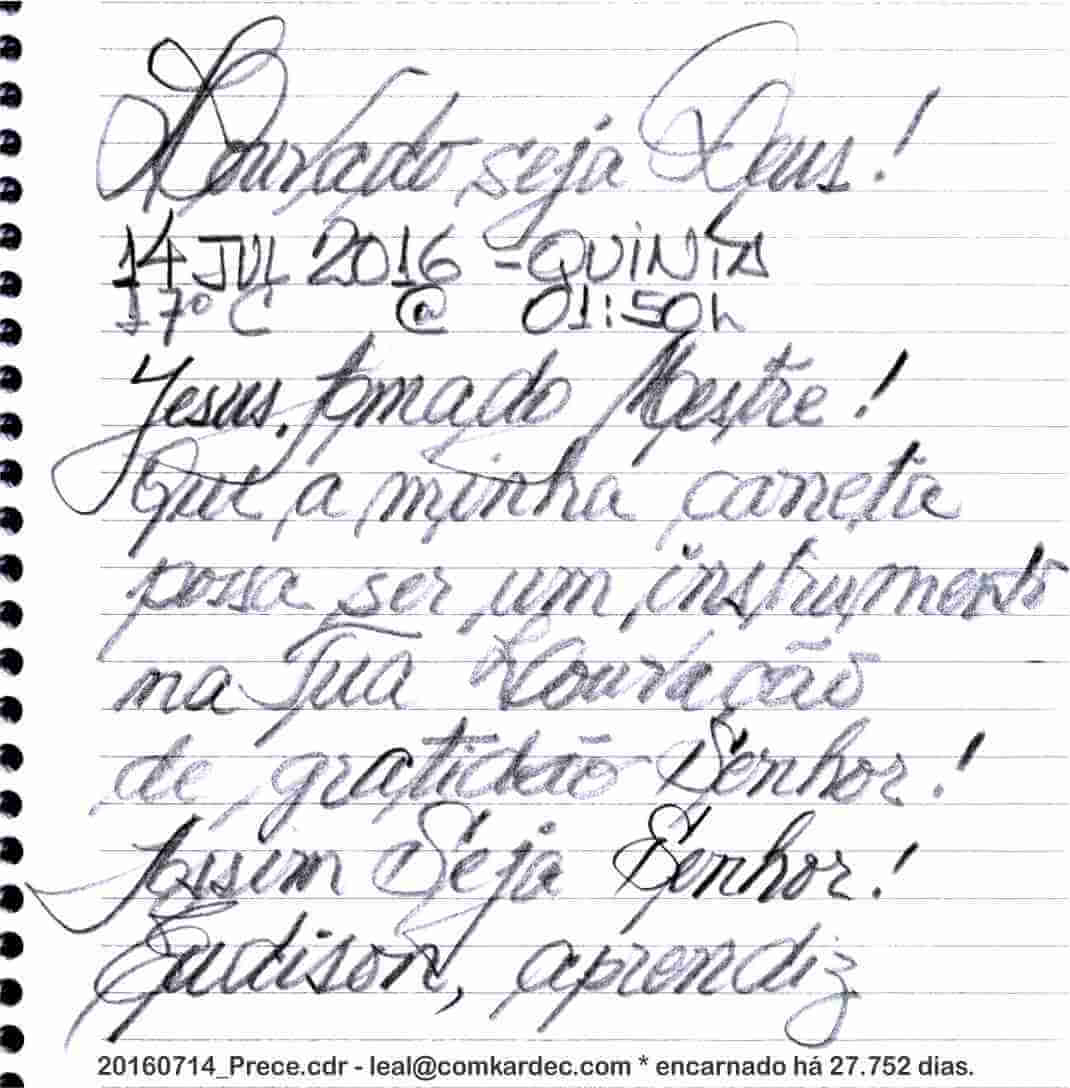 Louvado seja Deus!
14 JUL 2016 - QUiNTA
17º C @ 01:50h
Jesus, Amado Mestre!
Que a minha caneta
possa ser um instrumento
na Tua Louvação
de gratidão Senhor!
Assim Seja Senhor!
Eudison, aprendiz
20160714_Prece.cdr - leal@comkardec.com * encarnado há 27.752 dias.